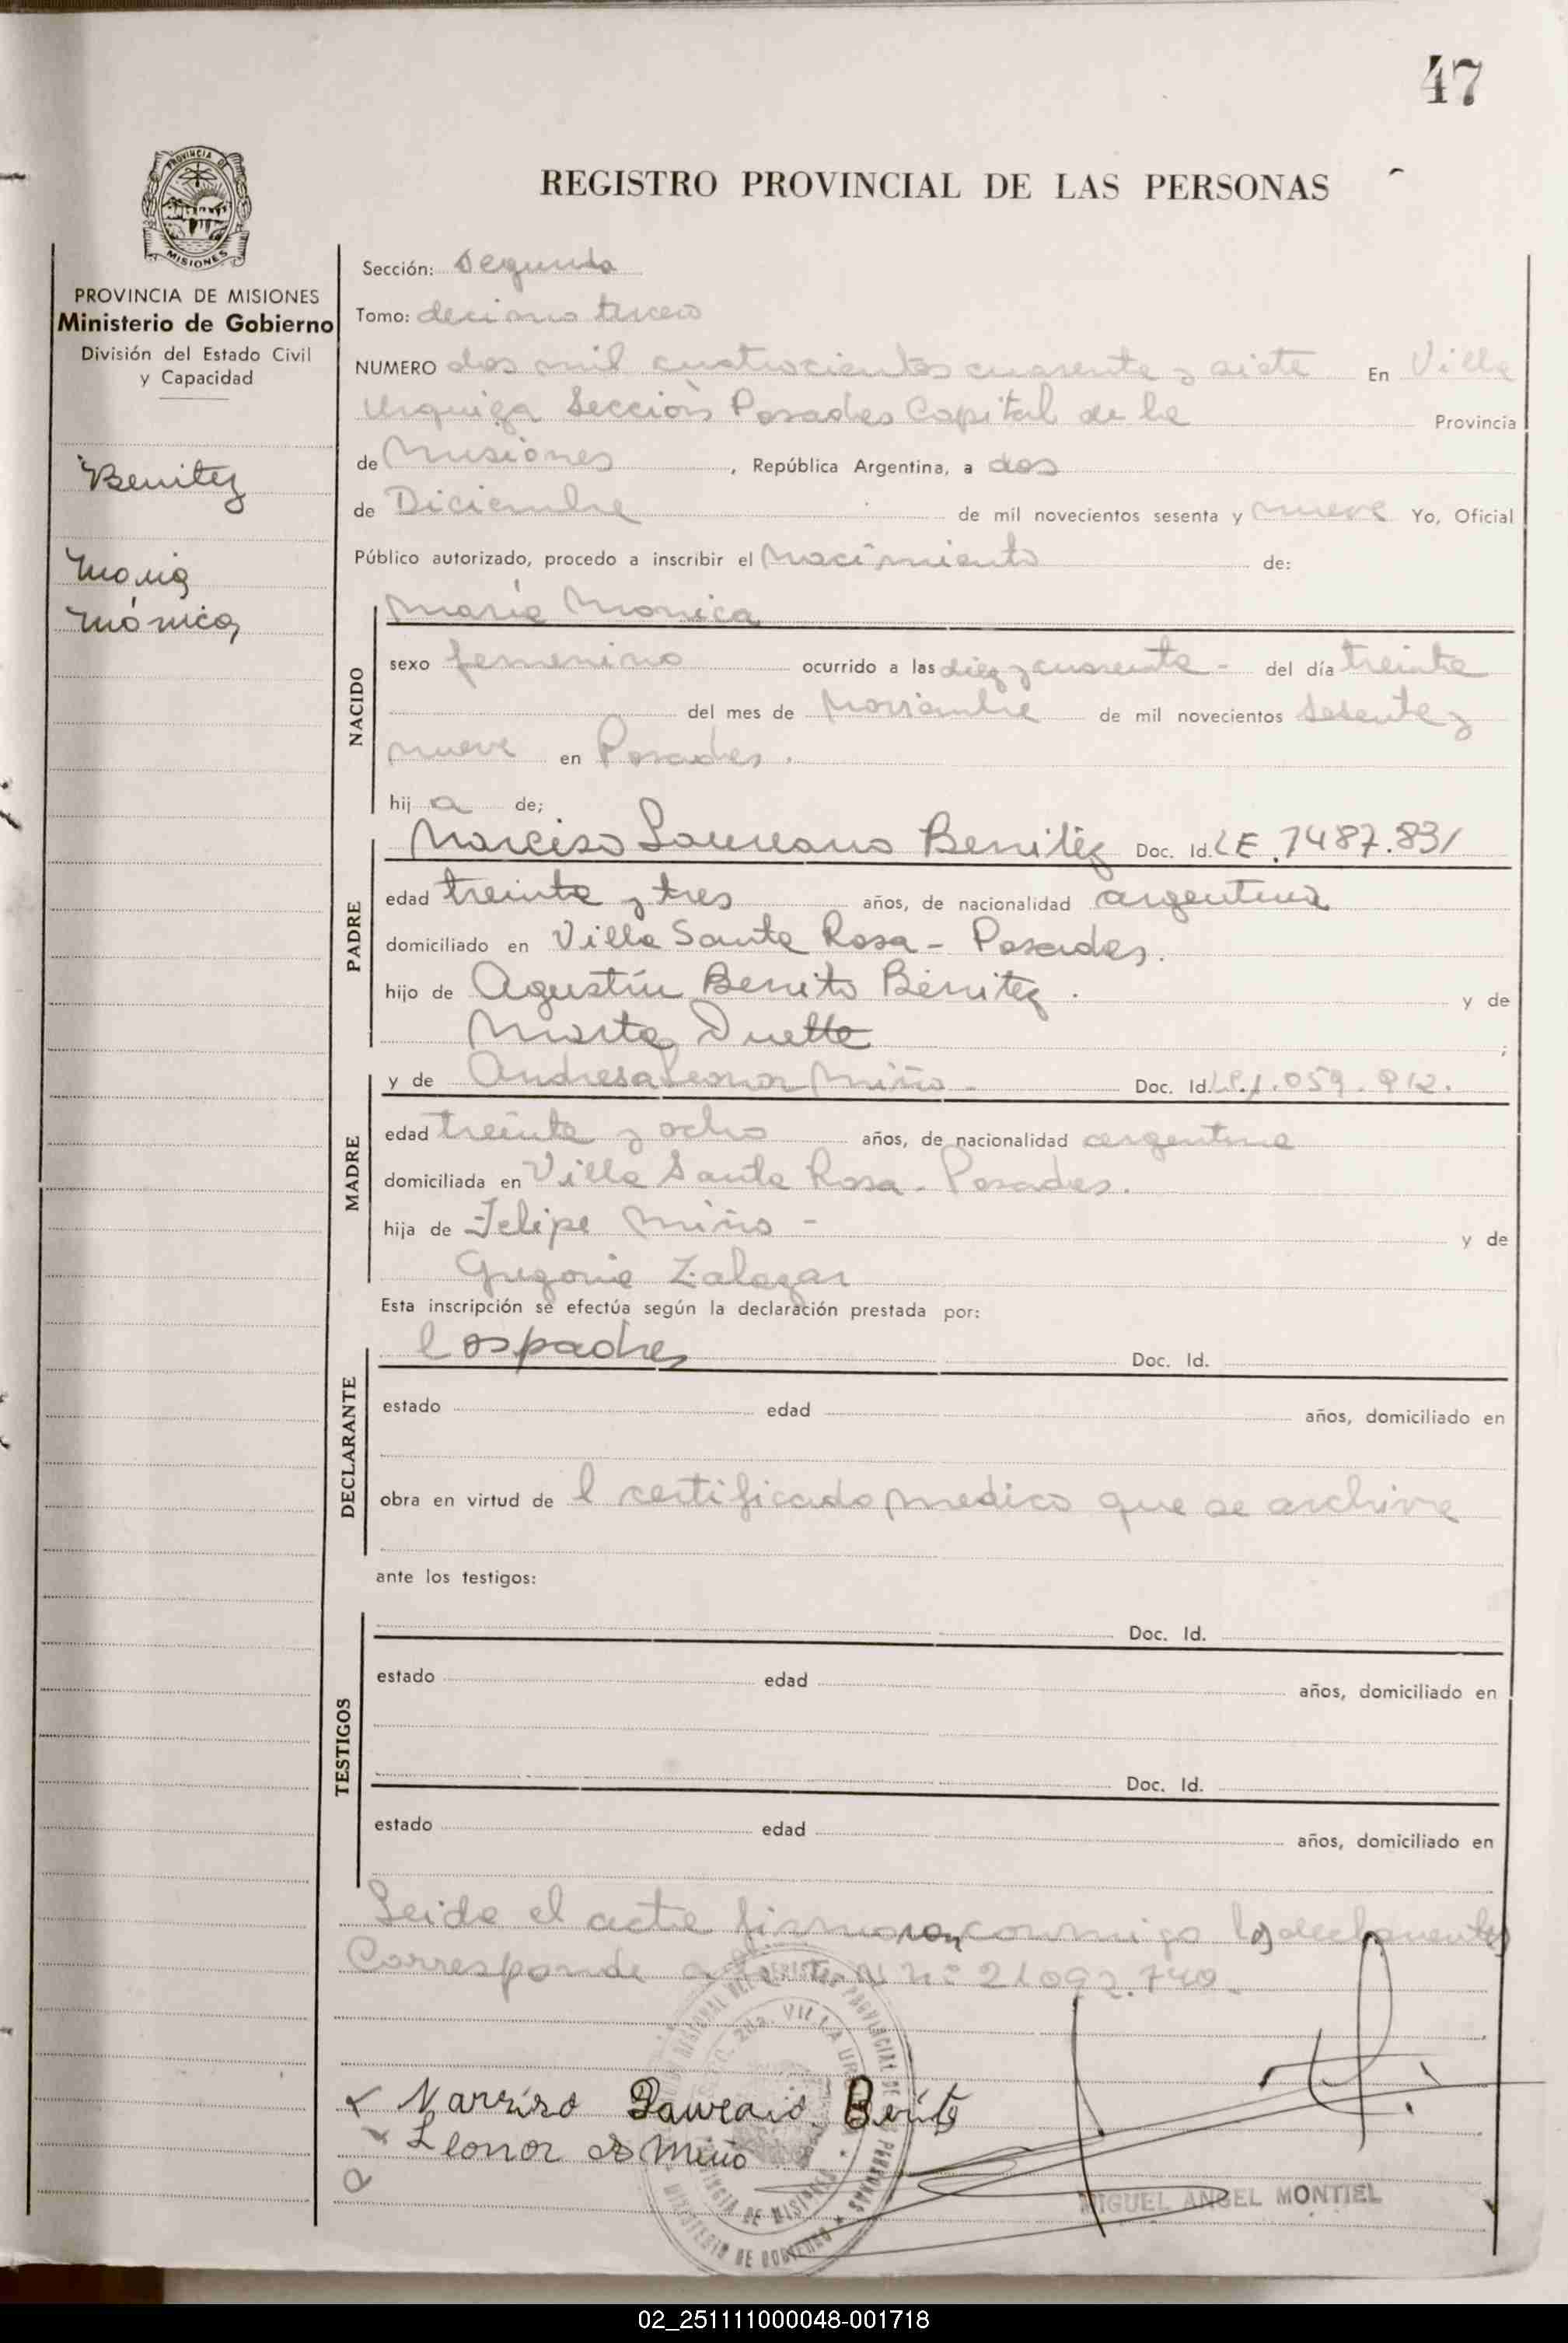 47
REGISTRO PROVINCIAL DE LAS PERSONAS
PROVINCIA DE MISIONES
PROVINCIA DE MISIONES
Ministerio de Gobierno
División del Estado Civil
y Capacidad
Benitez
Maria
Mónica
Sección: Segunda
Tomo: decimo tercero
NUMERO dos mil cuatrocientos cuarenta y siete En Villa
Urquiza Sección Posadas Capital de la Provincia
de Misiones, República Argentina, a dos
de Diciembre de mil novecientos sesenta y nueve Yo, Oficial
Público autorizado, procedo a inscribir el Nacimiento de:
NACIDO
Maria Monica
sexo femenino ocurrido a las diez y cuarenta - del día treinta
del mes de Noviembre de mil novecientos sesenta y
nueve en Posadas.
hij a de;
PADRE
Narciso Laureano Benitez Doc. Id. LE. 7487.831
edad treinta y tres años, de nacionalidad argentina
domiciliado en Villa Santa Rosa - Posadas.
hijo de Agustín Benito Benitez. y de
Marta Duette ;
MADRE
y de Andresa Leonor Miño - Doc. Id. LC.1.059.912.
edad treinta y ocho años, de nacionalidad argentina
domiciliada en Villa Santa Rosa - Posadas.
hija de Felipe Miño - y de
Gregoria Zalazar
Esta inscripción se efectúa según la declaración prestada por:
DECLARANTE
los padres Doc. Id.
estado edad años, domiciliado en
obra en virtud de l certificado medico que se archiva
ante los testigos:
TESTIGOS
Doc. Id.
estado edad años, domiciliado en
Doc. Id.
estado edad años, domiciliado en
Leida el acta firmaron conmigo los declarantes
Corresponde a N n: 21092.740.
Narciso Laureano Benitez
Leonor A Miño
MIGUEL ANGEL MONTIEL
02_251111000048-001718